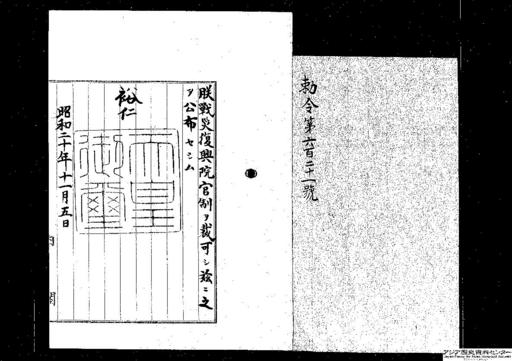 勅令第六百二十一號
朕戰災復興院官制ヲ裁可シ茲ニ之
ヲ公布セシム
裕仁
天皇御璽
昭和二十年十一月五日
内閣
アジア歴史資料センター